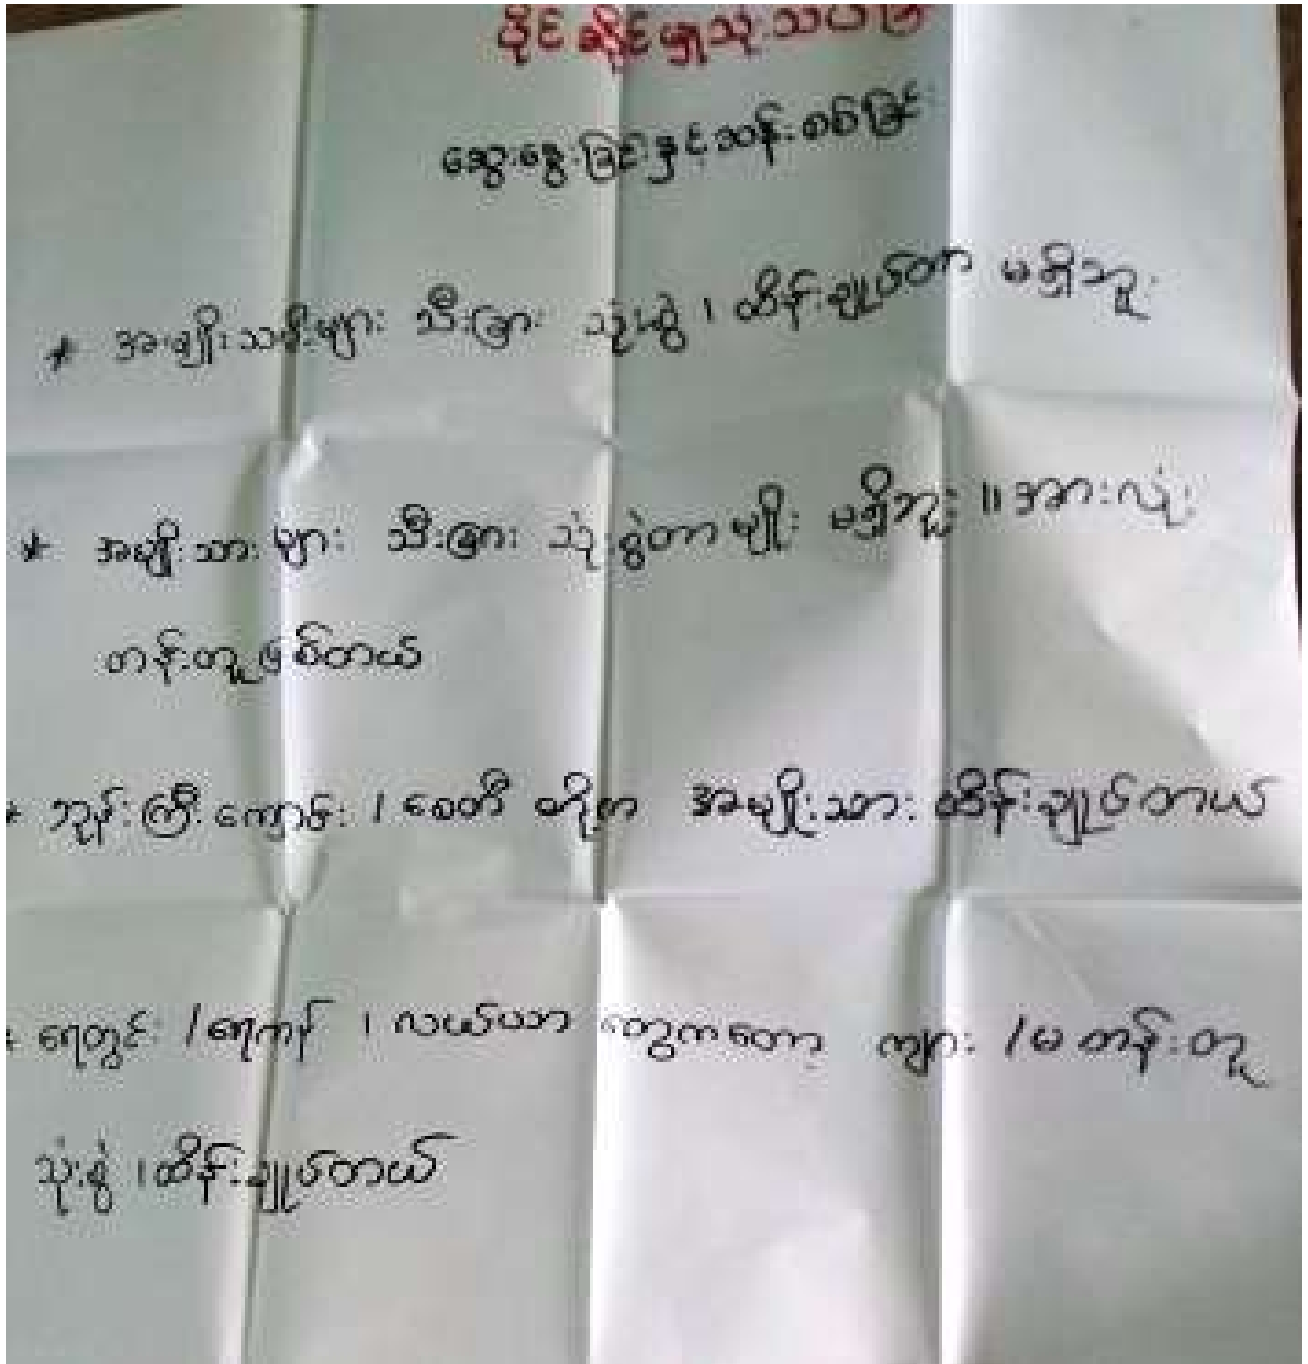 ပိုင်ဆိုင်မှုသုံးသပ်
ဆွေးနွေးခြင်းနှင့်သန်းစစ်ခြင်း
* အမျိုးသမီးများ သီးခြား သုံးစွဲ ၊ ထိန်းချုပ်တာ မရှိဘူး
* အမျိုးသားများ သီးခြား သုံးစွဲတာမျိုး မရှိဘူး ။ အားလုံး
တန်းတူဖြစ်တယ်
* ဘုန်းကြီးကျောင်း / စေတီ တို့က အမျိုးသား ထိန်းချုပ်တယ်
* ရေတွင်း / ရေကန် ၊ လယ်ယာ တွေကတော့ ကျား / မ တန်းတူ
သုံးစွဲ ၊ ထိန်းချုပ်တယ်